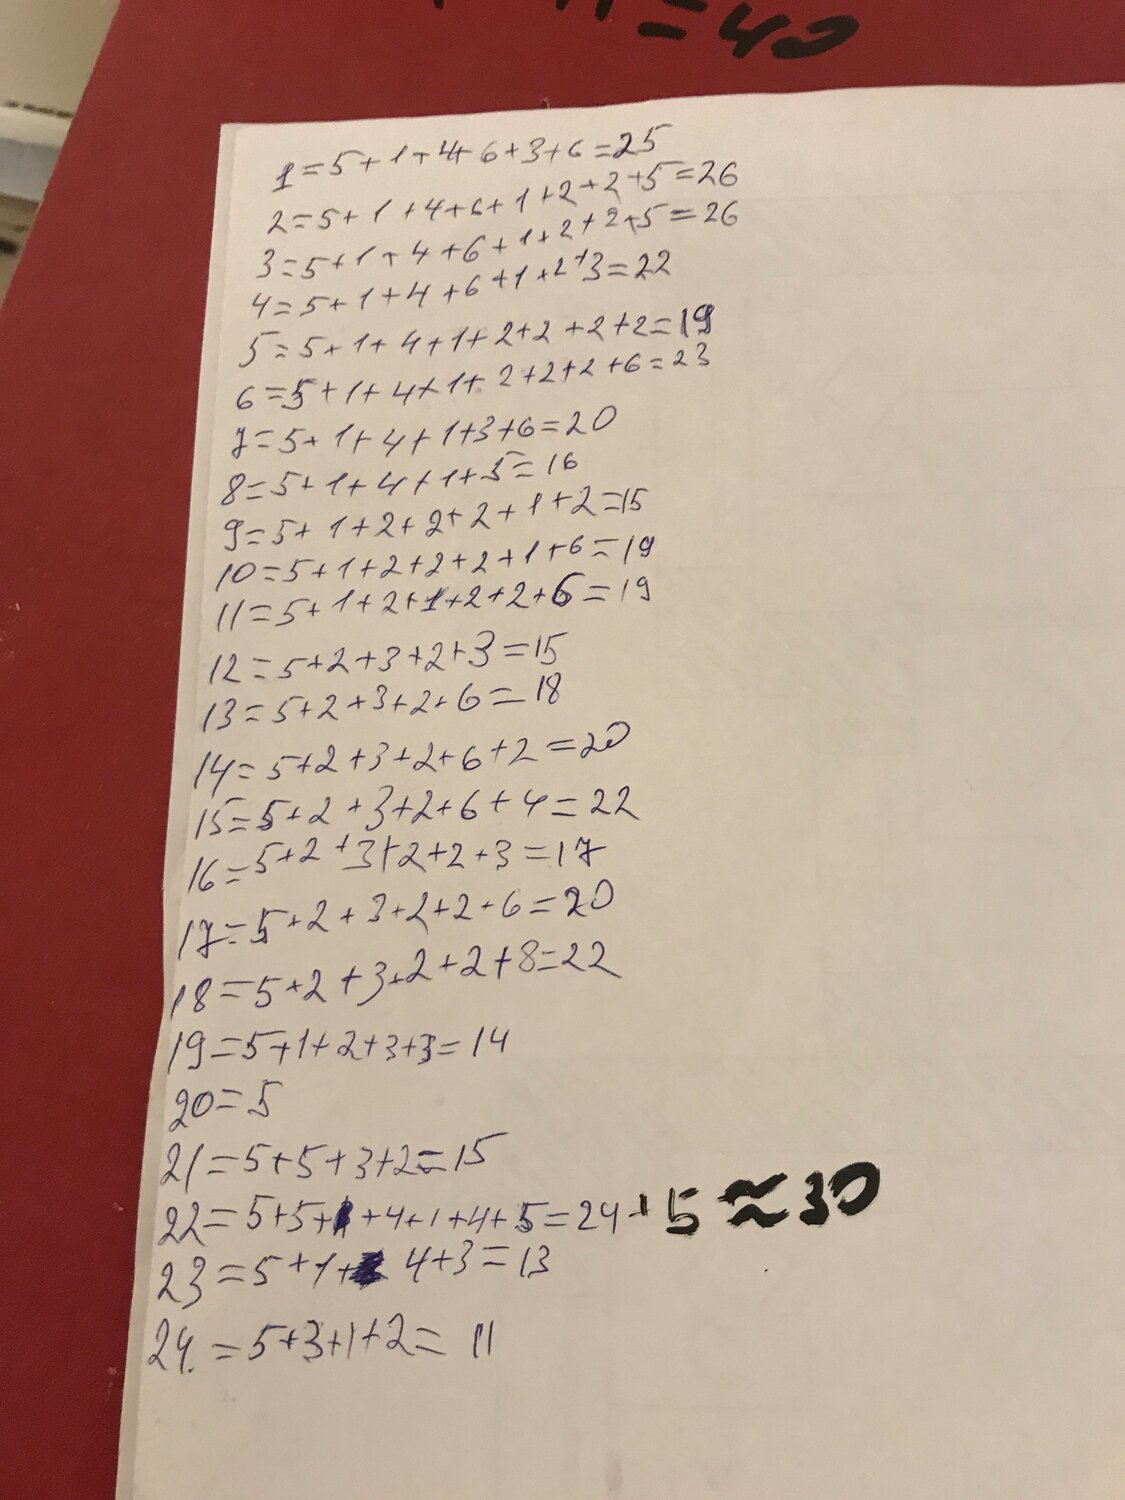 =40
1=5+1+4+6+3+6=25
2=5+1+4+6+1+2+2+5=26
3=5+1+4+6+1+2+2+5=26
4=5+1+4+6+1+2+3=22
5=5+1+4+1+2+2+2+2=19
6=5+1+4+1+2+2+2+6=23
7=5+1+4+1+3+6=20
8=5+1+4+1+5=16
9=5+1+2+2+2+1+2=15
10=5+1+2+2+2+1+6=19
11=5+1+2+1+2+2+6=19
12=5+2+3+2+3=15
13=5+2+3+2+6=18
14=5+2+3+2+6+2=20
15=5+2+3+2+6+4=22
16=5+2+3+2+2+3=17
17=5+2+3+2+2+6=20
18=5+2+3+2+2+8=22
19=5+1+2+3+3=14
20=5
21=5+5+3+2=15
22=5+5+1+4+1+4+5=24+5≈30
23=5+1+ 4+3=13
24.=5+3+1+2=11